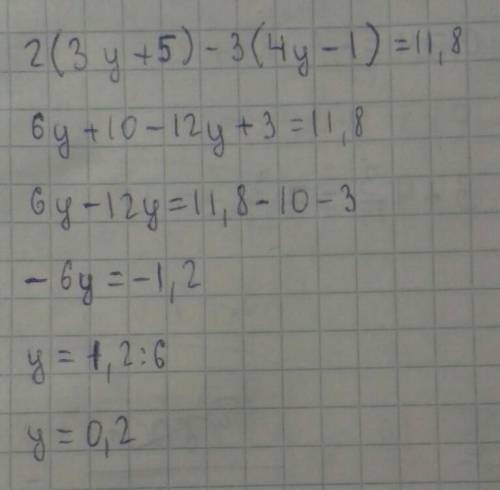 2(3y+5)-3(4y-1)=11,8
6y+10-12y+3=11,8
6y-12y=11,8-10-3
-6y=-1,2
y=1,2:6
y=0,2